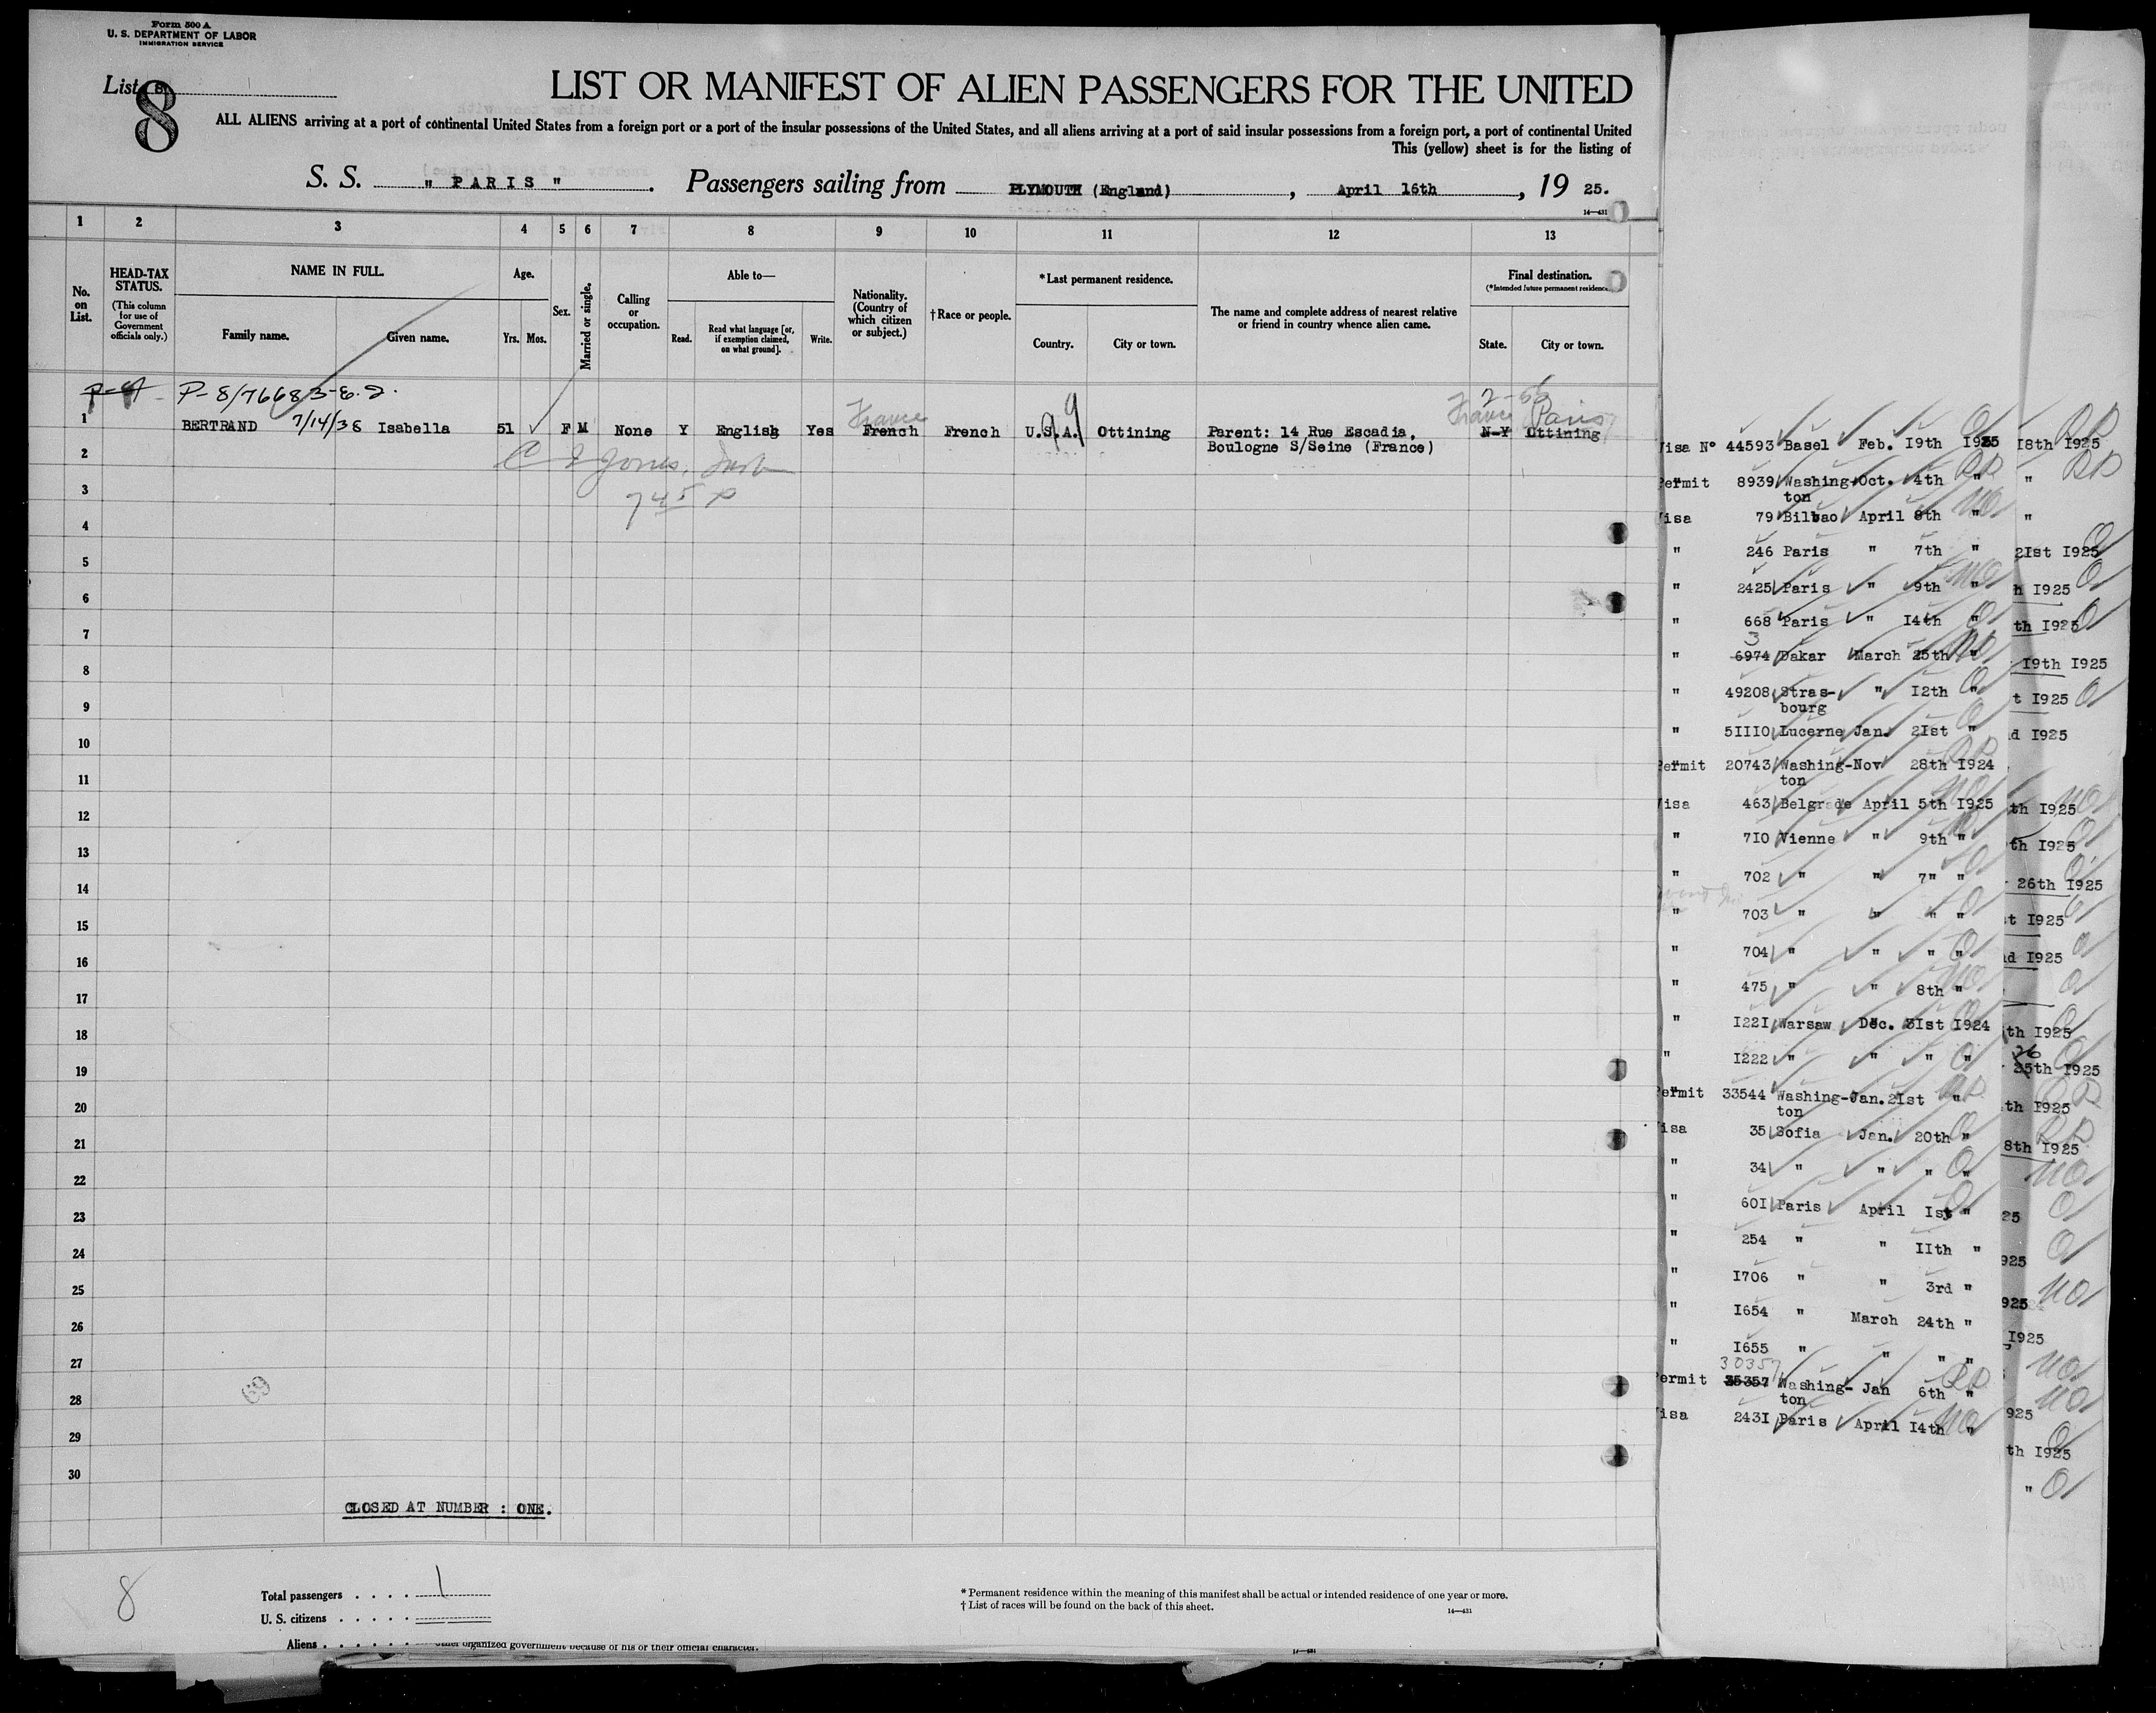 Form 500 A
U. S. DEPARTMENT OF LABOR
IMMIGRATION SERVICE
List 8
8
LIST OR MANIFEST OF ALIEN PASSENGERS FOR THE UNITED
ALL ALIENS arriving at a port of continental United States from a foreign port or a port of the insular possessions of the United States, and all aliens arriving at a port of said insular possessions from a foreign port, a port of continental United
This (yellow) sheet is for the listing of
S. S. " PARIS ". Passengers sailing from PLYMOUTH (England), April 16th, 19 25.
14—431
1 2 3 4 5 6 7 8 9 10 11 12 13
No. on List.
HEAD-TAX STATUS.
(This column for use of Government officials only.)
NAME IN FULL.
Family name. Given name.
Age.
Yrs. Mos.
Sex.
Married or single.
Calling or occupation.
Able to—
Read. Read what language [or, if exemption claimed, on what ground]. Write.
Nationality. (Country of which citizen or subject.)
†Race or people.
*Last permanent residence.
Country. City or town.
The name and complete address of nearest relative or friend in country whence alien came.
Final destination.
(*Intended future permanent residence
State. City or town.
P-8/76683-8.2. 2-56
France France Paris
1 BERTRAND 7/14/38 Isabella 51 F M None Y English Yes French French U.S.A. Ottining Parent: 14 Rue Escadia, N-Y Ottining
Boulogne S/Seine (France)
2
C E Jones,
3
745 P
4
5
6
7
8
9
10
11
12
13
14
15
16
17
18
19
20
21
22
23
24
25
26
27
28
69
29
30
CLOSED AT NUMBER : ONE.
8
Total passengers . . . . 1
U. S. citizens . . . . .
Aliens . . . . . .
other organized government because of his or their official character.
* Permanent residence within the meaning of this manifest shall be actual or intended residence of one year or more.
† List of races will be found on the back of this sheet.
14—431
isa Nº 44593 Basel Feb. I9th I925 I8th I925
ermit 8939 Washing- Oct. 4th " "
ton
isa 79 Bilbao April 8th " "
" 246 Paris " 7th " 2Ist I925
" 2425 Paris " 9th " h I925
" 668 Paris " I4th " th I925
3
" 6974 Dakar March 25th " I9th I925
" 49208 Stras- " I2th " t I925
bourg
" 5III0 Lucerne Jan. 2Ist " d I925
ermit 20743 Washing- Nov 28th I924
ton
isa 463 Belgrade April 5th I925 th I925
" 7I0 Vienne " 9th " th I925
" 702 " " 7" " 26th I925
" 703 " " " " t I925
" 704 " " " " d I925
" 475 " " 8th "
" I22I Warsaw Dec. 3Ist I924 th I925
" I222 " " " " 26 25th I925
ermit 33544 Washing- Jan. 2Ist " th I925
ton
isa 35 Sofia Jan. 20th " 8th I925
" 34 " " " "
" 60I Paris April Ist " 25
" 254 " " IIth " 925
" I706 " " 3rd " 925
" I654 " March 24th " I925
" I655 " " " "
30357
ermit 35357 Washing- Jan 6th "
ton
isa 243I Paris April I4th " 925
th I925
"